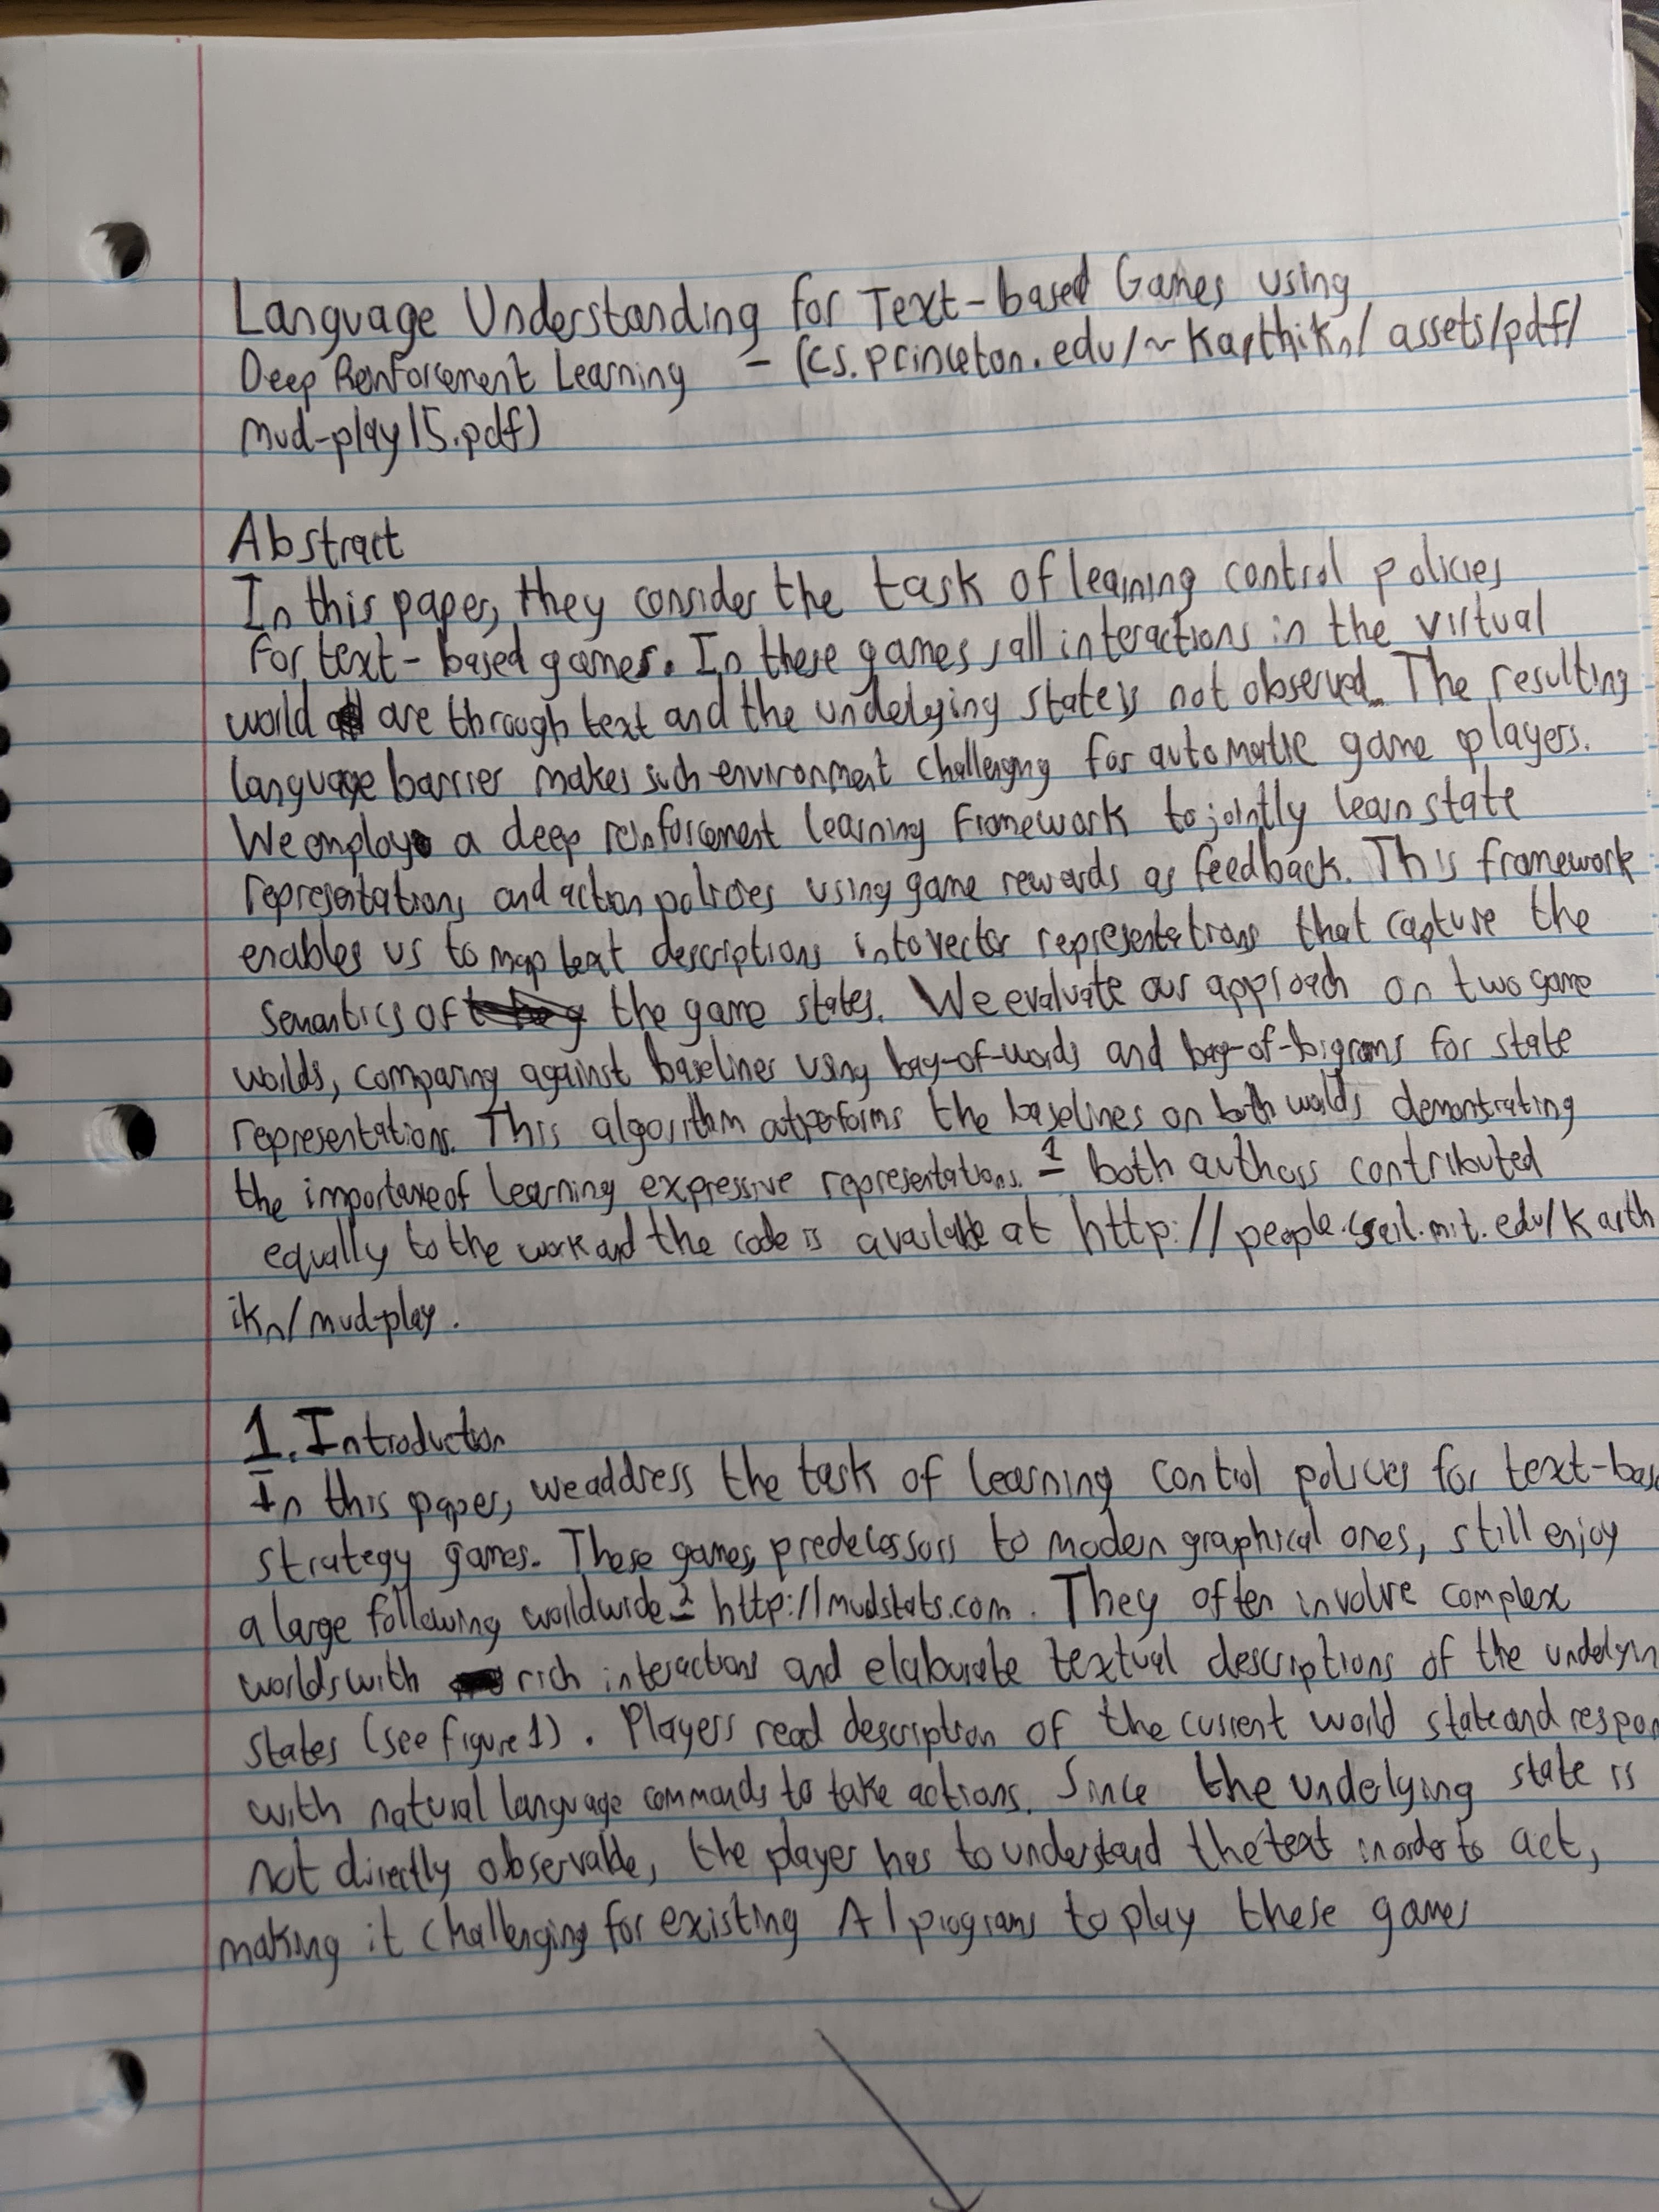 Language Understanding for Text-based Games using
Deep Reinforcement Learning - (cs.princeton.edu/~karthikn/assets/pdf/
mud-play15.pdf)
Abstract
In this paper, they consider the task of learning control policies
for text-based games. In these games, all interactions in the virtual
world are through text and the underlying state is not observed. The resulting
language barrier makes such environment challenging for automatic game players.
We employ a deep reinforcement learning framework to jointly learn state
representations and action policies using game rewards as feedback. This framework
enables us to map text descriptions into vector representations that capture the
semantics of the game states. We evaluate our approach on two game
worlds, comparing against baselines using bag-of-words and bag-of-bigrams for state
representations. This algorithm outperforms the baselines on both worlds demonstrating
the importance of learning expressive representations. 1 - both authors contributed
equally to the work and the code is available at http://people.csail.mit.edu/karth
ikn/mud-play.
1. Introduction
In this paper, we address the task of learning control policies for text-bas
strategy games. These games, predecessors to modern graphical ones, still enjoy
a large following worldwide 2 - http://mudstats.com. They often involve complex
worlds with rich interactions and elaborate textual descriptions of the underlyin
states (see figure 1). Players read description of the current world state and respon
with natural language commands to take actions. Since the underlying state is
not directly observable, the player has to understand the text in order to act,
making it challenging for existing AI programs to play these games